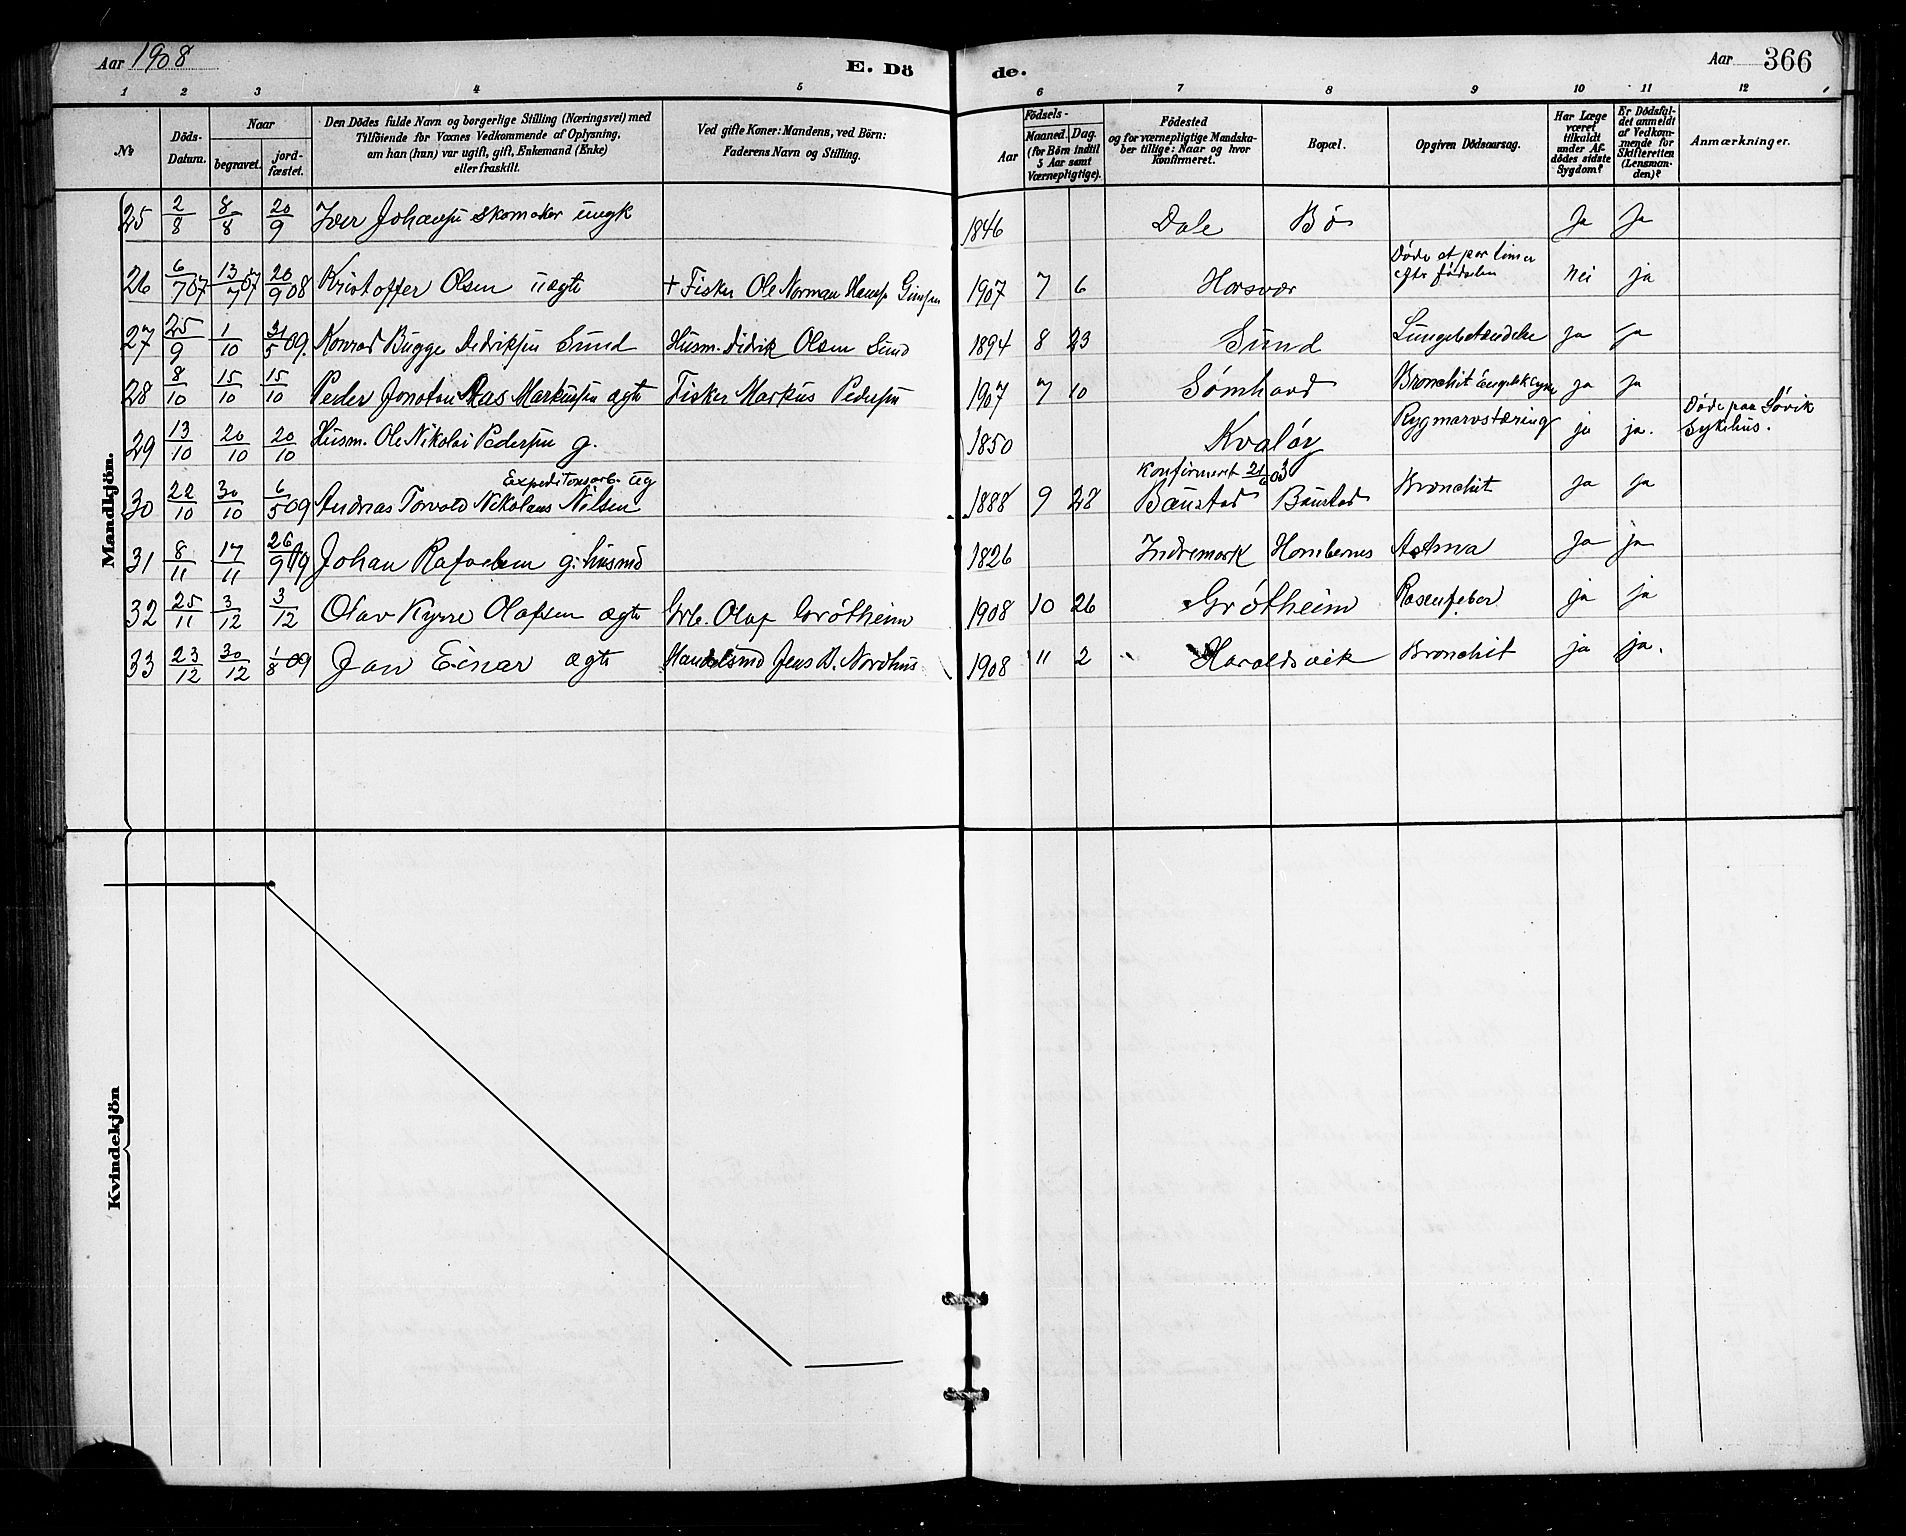 Aar 1908 E. Dö de. Aar 366
1 2 3 4 5 6 7 8 9 10 11 12
№
Döds-Datum.
Naar
begravet.
jord-fæstet.
Den Dödes fulde Navn og borgerlige Stilling (Næringsvei) med
Tilföiende for Voxnes Vedkommende af Oplysning,
om han (hun) var ugift, gift, Enkemand (Enke)
eller fraskilt.
Ved gifte Koner: Mandens, ved Börn:
Faderens Navn og Stilling.
Födsels-
Aar
Maaned. Dag.
(for Börn indtil
5 Aar samt
Værnepligtige).
Födested
og for værnepligtige Mandska-
ber tillige: Naar og hvor
Konfirmeret.
Bopæl.
Opgiven Dödsaarsag.
Har Læge
været
tilkaldt
under Af-
dödes sidste
Sygdom?
Er Dödsfal-
det anmeldt
af Vedkom-
mende for
Skifteretten
(Lensman-
den)?
Anmærkninger.
Mandkjön.
25 2/8 8/8 20/9 Iver Johansen skomaker ungk 1846 Dale Bø Ja Ja
26 6/7 07 13/7 07 20/9 08 Kristoffer Olsen uægte + Fisker Ole Norman Hansen 1907 7 6 Horsvær Døde et par timer
efter fødselen nei ja
27 25/9 1/10 31/5 09. Konrad Bugge Dedriksen Sund Husm. Didrik Olsen Sund 1894 8 23 Sund Lungebetændelse ja ja
28 8/10 15/10 15/10 Peder Jonatan Aas Markussen ægte Fisker Markus Pedersen 1907 7 10 Sømhovd Bronchit Engelsk syge ja ja
29 13/10 20/10 20/10 Husm. Ole Nikolai Pedersen g. 1850 Kvaløy Rygmarvstæring ja ja. Døde paa Søvik
Sykehus.
30 22/10 30/10 6/5 09 Andreas Torvald Nikolaus Nilsen Expeditionsarb. ug 1888 9 28 Konfirmeret 21/6 03
Bænstad Bænstad Bronchit ja ja
31 8/11 17/11 26/9 09 Johan Rafaelsen g. husmd 1826 Indremark Hombornes Astma Ja ja
32 25/11 3/12 3/12 Olav Kyrre Olafsen ægte Grb. Olaf Grøtheim 1908 10 26 Grøtheim Rosenfeber ja ja
33 23/12 30/12 1/8 09 Jan Einar ægte Handelsmd Jens B. Nordhus 1908 11 2 Haroldsvik Bronchit ja ja.
Kvindekjön